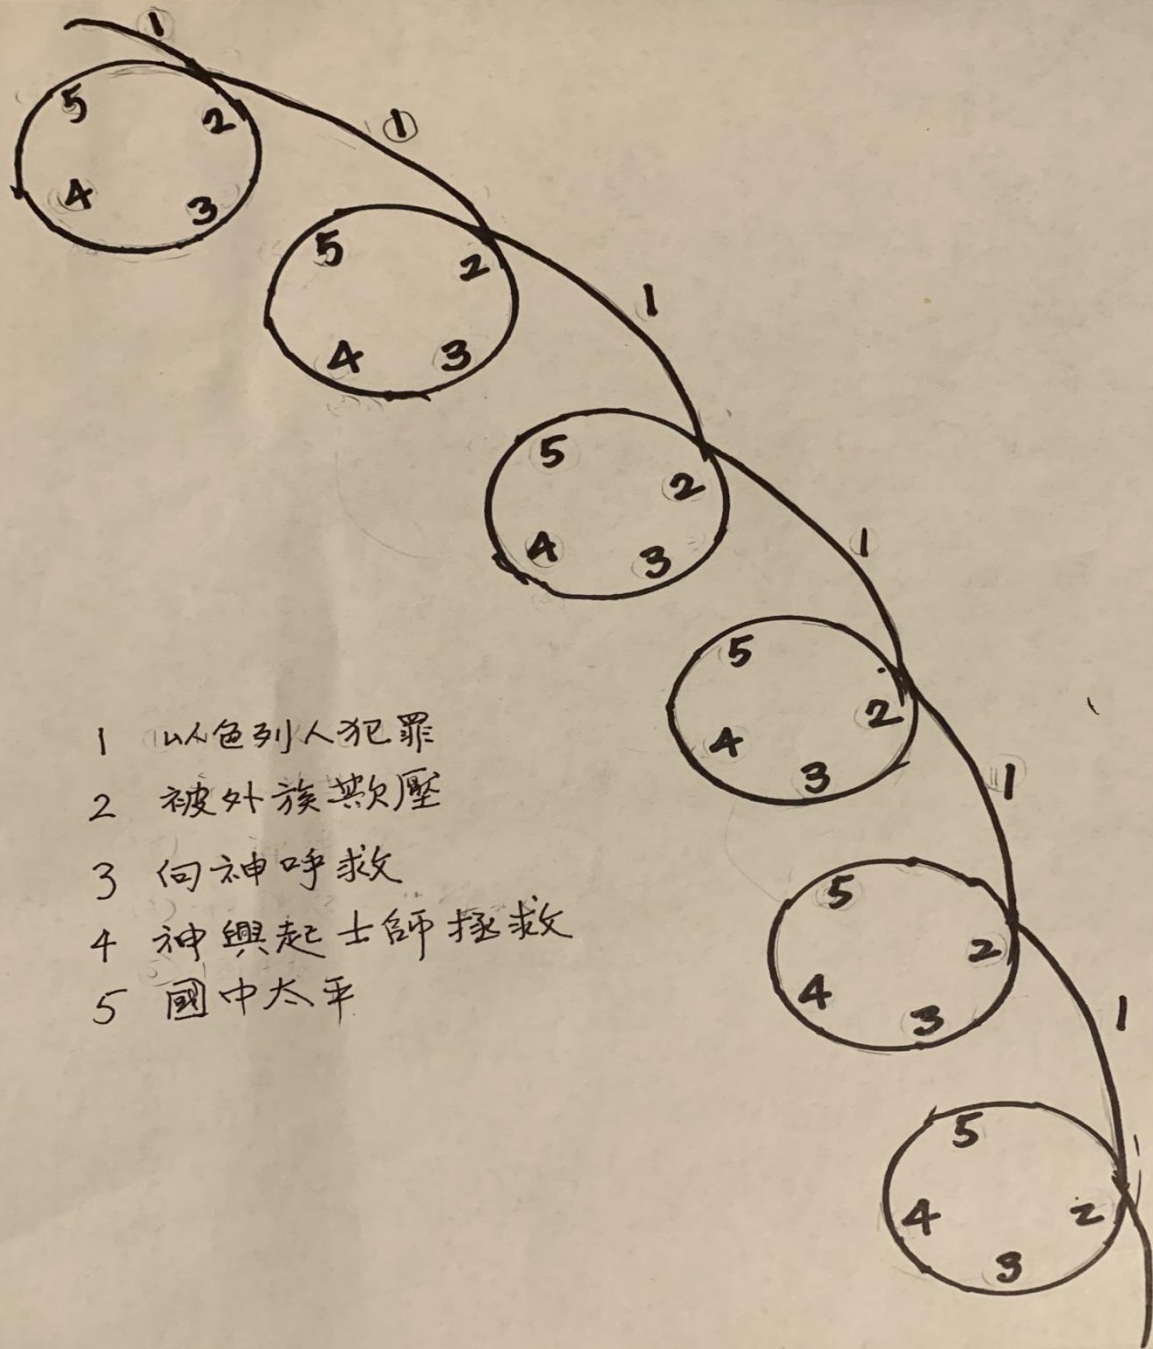 1
1
5
2
4
3
5
2
4
3
1
5
2
4
3
1
5
2
4
3
1
5
2
4
3
1
5
2
4
3
1 以色列人犯罪
2 被外族欺壓
3 向神呼救
4 神興起士師拯救
5 國中太平